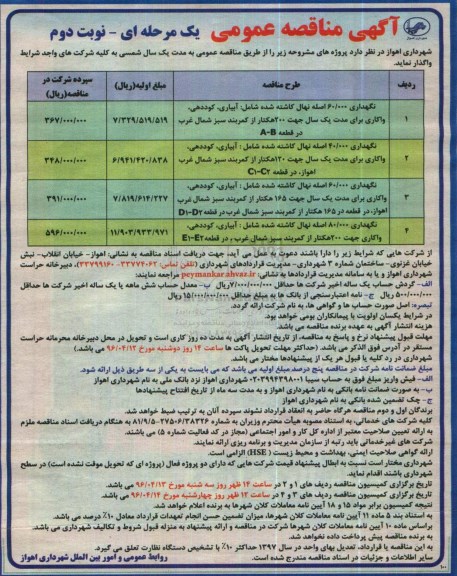 آگهی مناقصه عمومی یک مرحله ای - نوبت دوم
شهرداری اهواز در نظر دارد پروژه های مشروحه زیر را از طریق مناقصه عمومی به مدت یک سال شمسی به کلیه شرکت های واجد شرایط
واگذار نماید.
ردیف طرح مناقصه مبلغ اولیه(ریال) سپرده شرکت در مناقصه(ریال)
۱ نگهداری ۶۰/۰۰۰ اصله نهال کاشته شده شامل: آبیاری، کوددهی، ۷/۳۲۹/۵۱۹/۵۱۹ ۳۶۷/۰۰۰/۰۰۰
واکاری برای مدت یک سال جهت ۲۰۰هکتار از کمربند سبز شمال غرب
در قطعه A-B
۲ نگهداری ۴۰/۰۰۰ اصله نهال کاشته شده شامل: آبیاری، کوددهی، ۶/۹۴۱/۴۲۰/۸۳۸ ۳۴۸/۰۰۰/۰۰۰
واکاری برای مدت یک سال جهت ۱۲۰هکتار از کمربند سبز شمال غرب
اهواز، در قطعه C۱-C۲
۳ نگهداری ۶۰/۰۰۰ اصله نهال کاشته شده شامل: آبیاری، کوددهی، ۷/۸۱۹/۶۱۴/۲۲۷ ۳۹۱/۰۰۰/۰۰۰
واکاری برای مدت یک سال جهت ۱۶۵ هکتار از کمربند سبز شمال غرب
اهواز، در قطعه در ۱۶۵ هکتار از کمربند سبز شمال غرب در قطعه D۱-D۲
۴ نگهداری ۸۰/۰۰۰ اصله نهال کاشته شده شامل: آبیاری، کوددهی، ۱۱/۹۰۳/۹۳۳/۹۷۱ ۵۹۶/۰۰۰/۰۰۰
واکاری جهت ۲۰۰هکتار از کمربند سبز شمال غرب، در قطعه E۱-E۲
از شرکت هایی که شرایط زیر را دارا باشند دعوت به عمل می آید، جهت دریافت اسناد مناقصه به نشانی: اهواز- خیابان انقلاب- نبش
خیابان غزنوی- ساختمان شماره ۳ شهرداری- مدیریت قراردادهای شهرداری (تلفن تماس: ۳۳۷۷۴۰۶۲- ۳۳۷۹۹۱۶۰)، دبیرخانه حراست
شهرداری اهواز و یا به سامانه مدیریت قراردادها به نشانی: peymankar.ahvaz.ir مراجعه نمایند:
الف- گردش حساب یک ساله اخیر شرکت ها حداقل ۷/۰۰۰/۰۰۰/۰۰۰ریال ب- معدل حساب شش ماهه یا یک ساله اخیر شرکت ها حداقل
۵۰۰/۰۰۰/۰۰۰ ریال ج- نامه اعتبارسنجی از بانک ها به مبلغ حداقل ۱۵/۰۰۰/۰۰۰/۰۰۰ ریال
تبصره: اصل صورت حساب ها و گواهی ها، به نام شرکت ارائه گردد.
در شرایط یکسان اولویت با پیمانکاران بومی خواهد بود.
هزینه انتشار آگهی به عهده برنده مناقصه می باشد.
مهلت قبول پیشنهاد نرخ و پاسخ به مناقصه، از تاریخ انتشار آگهی به مدت ده روز کاری است و تحویل در محل دبیرخانه محرمانه حراست
مستقر در آدرس فوق الذکر می باشد. (حداکثر مهلت تحویل پاکت ها ساعت ۱۴ روز دوشنبه مورخ ۹۶/۰۴/۱۲ می باشد.)
شهرداری در رد کلیه یا قبول هر یک از پیشنهادها مختار می باشد.
مبلغ ضمانت نامه شرکت در مناقصه پنج درصد مبلغ اولیه می باشد که می بایست به یکی از سه طریق ذیل ارائه شود.
الف- فیش واریز مبلغ فوق به حساب سیبا ۲۰۳۹۹۴۳۹۸۰۰۱- شهرداری اهواز نزد بانک ملی به نام شهرداری اهواز
ب- به صورت ضمانت نامه بانکی به نام شهرداری اهواز و به مدت سه ماه از تاریخ افتتاح پیشنهادها
ج- چک تضمین شده بانکی به نام شهرداری اهواز
برندگان اول و دوم مناقصه هرگاه حاضر به انعقاد قرارداد نشوند سپرده آنان به ترتیب ضبط خواهد شد.
کلیه شرکت های خدماتی، به استناد مصوبه هیأت محترم وزیران به شماره ۳۸۳۲۶/ت۲۷۵۰۶ه ۸۱/۹/۵ به هنگام دریافت اسناد مناقصه ملزم
به ارائه تعیین صلاحیت معتبر از اداره کل کار و امور اجتماعی (مجاز در کد فعالیت شماره ۵) می باشند.
شرکت های غیرخدماتی باید رتبه از سازمان مدیریت و برنامه ریزی ارائه نمایند.
ارائه گواهی صلاحیت ایمنی، بهداشت و محیط زیست (HSE) الزامی است.
شهرداری مختار است نسبت به ابطال پیشنهاد قیمت شرکت هایی که دارای دو پروژه فعال (پروژه ای که تحویل موقت نشده است) در سطح
شهرداری باشند اقدام نماید.
تاریخ برگزاری کمیسیون مناقصه ردیف های ۱ و ۲ در ساعت ۱۴ ظهر روز سه شنبه مورخ ۹۶/۰۴/۱۳ می باشد.
تاریخ برگزاری کمیسیون مناقصه ردیف های ۳ و ۴ در ساعت ۱۲ ظهر روز چهارشنبه مورخ ۹۶/۰۴/۱۴ می باشد.
نتیجه کمیسیون برابر مواد ۱۵ و ۱۸ آیین نامه معاملات کلان شهرها به برنده اعلام خواهد شد.
به استناد بند ۵ ماده ۱۱ آیین نامه معاملات کلان شهرها، میزان تضمین حسن انجام تعهدات قرارداد معادل ۱۰٪ درصد می باشد.
براساس ماده ۱۰ آیین نامه معاملات کلان شهرها شرکت در مناقصه و ارائه پیشنهاد به منزله قبول شروط و تکالیف شهرداری می باشد.
به برنده مناقصه پیش پرداخت داده نخواهد شد.
به این مناقصه یا قرارداد، تعدیل بهای واحد در سال ۱۳۹۷ حداکثر ۱۰٪ با تشخیص دستگاه نظارت تعلق می گیرد.
سایر اطلاعات و جزئیات در اسناد مناقصه مندرج شده است. روابط عمومی و امور بین الملل شهرداری اهواز